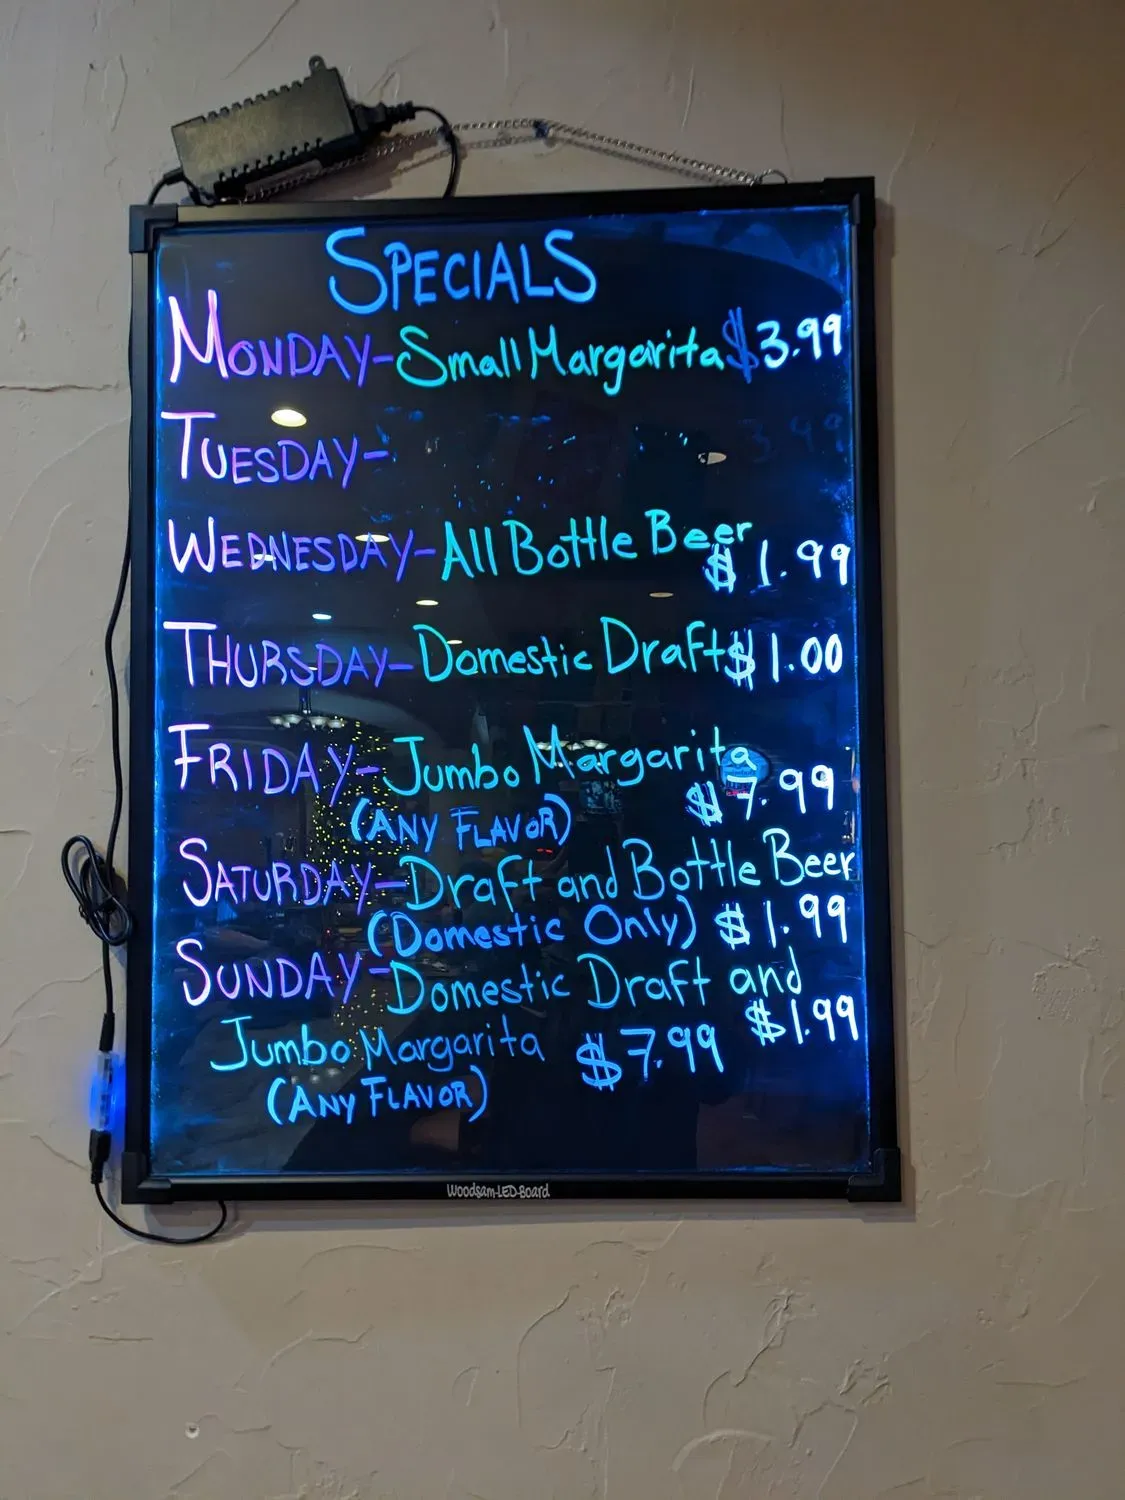 SPECIALS
MONDAY-Small Margarita $3.99
TUESDAY-
WEDNESDAY-All Bottle Beer
$1.99
THURSDAY-Domestic Draft $1.00
FRIDAY-Jumbo Margarita
$7.99
(ANY FLAVOR)
SATURDAY-Draft and Bottle Beer
(Domestic Only) $1.99
SUNDAY-Domestic Draft and
$1.99
Jumbo Margarita $7.99
(ANY FLAVOR)
Woodsam-LED-Board